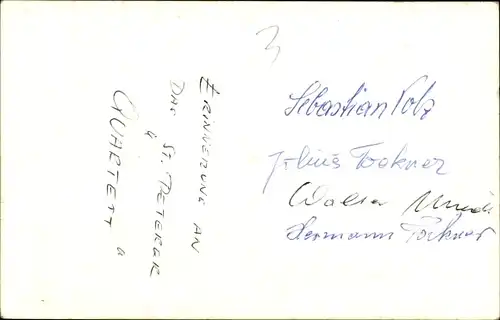 3
ERINNERUNG AN
DAS ST. PETERER
QUARTETT
Sebastian Polz
Julius Fockner
Walter
Hermann Föckner